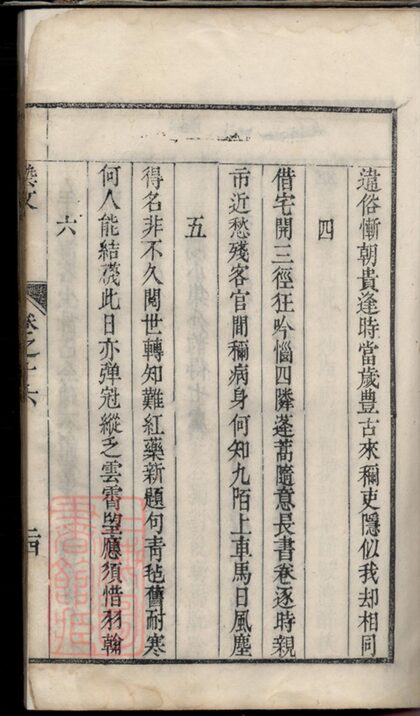 違俗慚朝貴逢時當歲豊古來稱吏隱似我却相同
四
借宅開三徑狂吟惱四隣蓬蒿隨意長書卷逐時親
市近愁殘客官間稱病身何知九陌上車馬日風塵
五
得名非不久閱世轉知難紅藥新題句青毡舊耐寒
何人能結襪此日亦弹冠縱乏雲霄望應須惜羽翰
六
卷之十六
二四